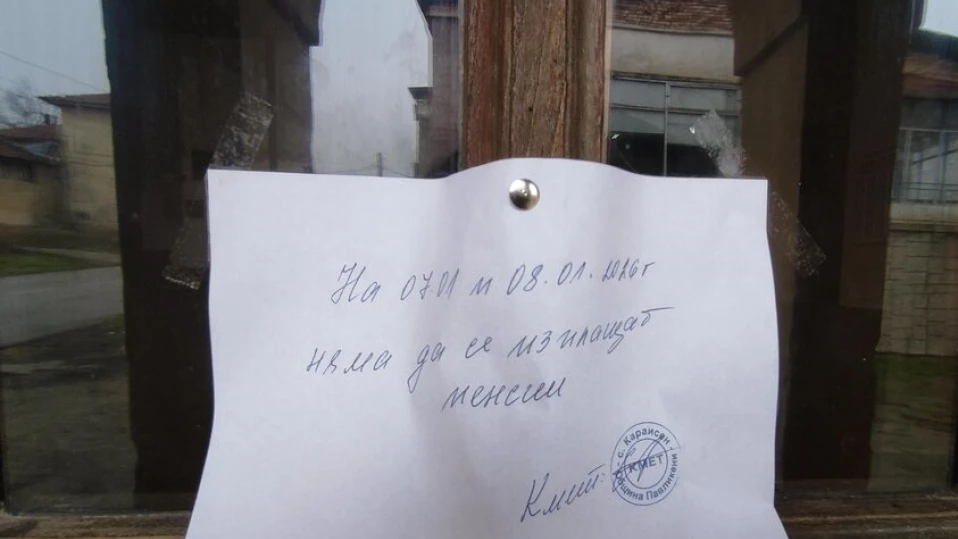 На 0701 и 08.01.2026г
няма да се изплащат
пенсии
Кмет:
с. Караисен
КМЕТ
Община Павликени